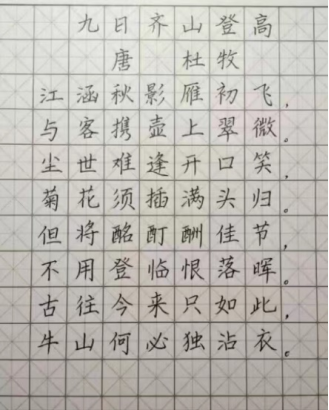 九日齐山登高
唐 杜牧
江涵秋影雁初飞，
与客携壶上翠微。
尘世难逢开口笑，
菊花须插满头归。
但将酩酊酬佳节，
不用登临恨落晖。
古往今来只如此，
牛山何必独沾衣。